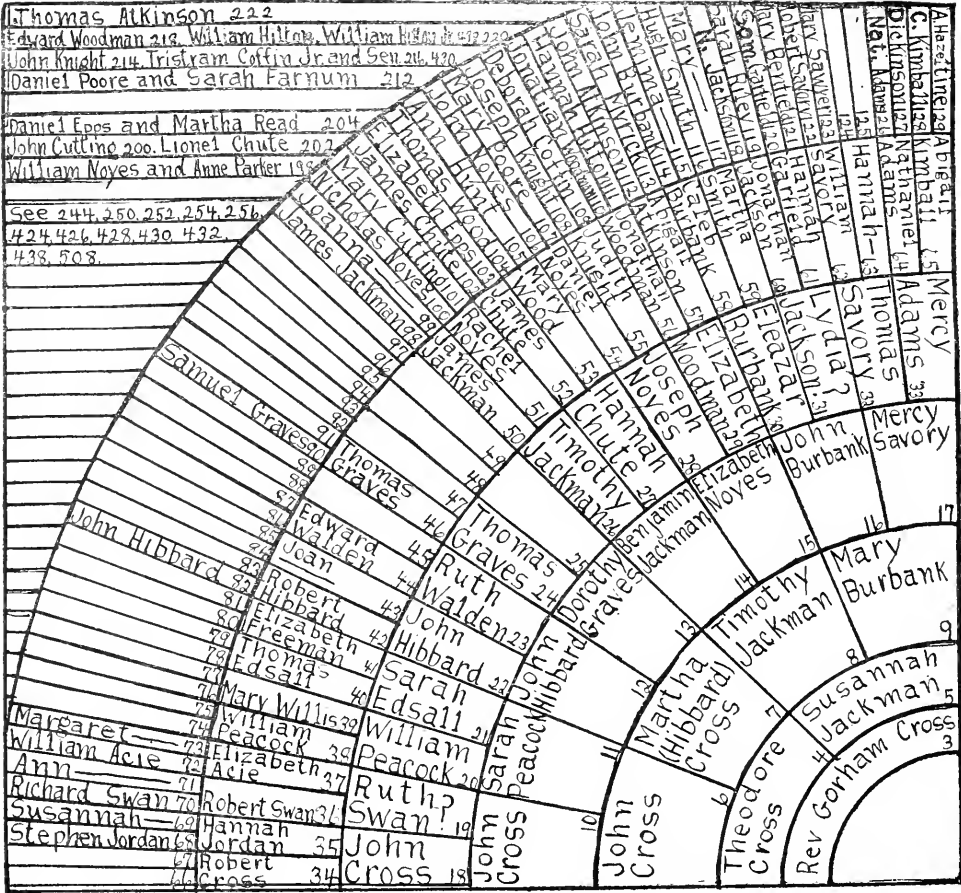 I.Thomas Atkinson 222
Edward Woodman 218. William Hilton, William Hilton Jr
John Knight 214. Tristram Coffin Jr. and Sen. 216, 420
Daniel Poore and Sarah Farnum 212
Daniel Epps and Martha Read 204
John Cutting 200. Lionel Chute 202
William Noyes and Anne Parker
See 244, 250, 252, 254, 256,
424, 426, 428, 430, 432,
438, 508.
Rev Gorham Cross
3
Theodore Cross
4
Susannah Jackman
5
John Cross
6
Martha (Hibbard) Cross
7
Timothy Jackman
8
Mary Burbank
9
John Cross
10
Sarah Peacock
11
John Hibbard
12
Dorothy Graves
13
Benjamin Jackman
14
Elizabeth Noyes
15
John Burbank
16
Mercy Savory
17
John Cross 18
Ruth? Swan? 19
William Peacock 20
Sarah Edsall 21
John Hibbard 22
Ruth Walden 23
Thomas Graves 24
25
Timothy Jackman 26
Hannah Chute 27
Joseph Noyes 28
Elizabeth Woodman 29
Eleazar Burbank 30
Lydia? Jackson. 31
Thomas Savory 32
Mercy Adams 33
Robert Cross 34
Hannah Jordan 35
Robert Swan 36
Elizabeth Acie 37
William Peacock 39
Mary Willis 39
Thomas Edsall 40
Elizabeth Freeman 41
Robert Hibbard 42
Joan 43
Edward Walden 44
45
Thomas Graves 46
47
48
49
James Jackman 50
Rachel Noyes 51
James Chute 52
Mary Wood 53
Daniel Noyes 54
Judith Knight 55
Jonathan Woodman
Abigail Atkinson 57
Caleb Burbank
Martha Smith 59
Jonathan Jackson 60
Hannah Garfield 61
William Savory 63
Hannah
Nathaniel Adams 64
Abigail Kimball 65
66
67
Stephen Jordan 68
Susannah 69
Richard Swan 70
Ann 71
William Acie 72
Margaret 73
74
75
76
77
78
79
80
81
John Hibbard 82
Samuel Graves 90
91
James Jackman 98
Joanna 99
Nicholas Noyes 100
Mary Cutting 101
James Chute 102
Elizabeth Epps 103
Thomas Wood 104
Ann Hunt
John Noyes
Mary Poore
Joseph Knight
Deborah Coffin
Jonathan Woodman
Hannah Hilton
John Atkinson 112
Sarah Myrick
John Burbank 114
Jemima
Hugh Smith 116
Mary
N. Jackson
Sarah Riley 119
Sam. Garfield 120
Mary Benfield 121
Robert Savory 122
Mary Sawyer 123
124
125
Nat. Adams 126
Dickinson 127
C. Kimball 128
A Hazeltine 129